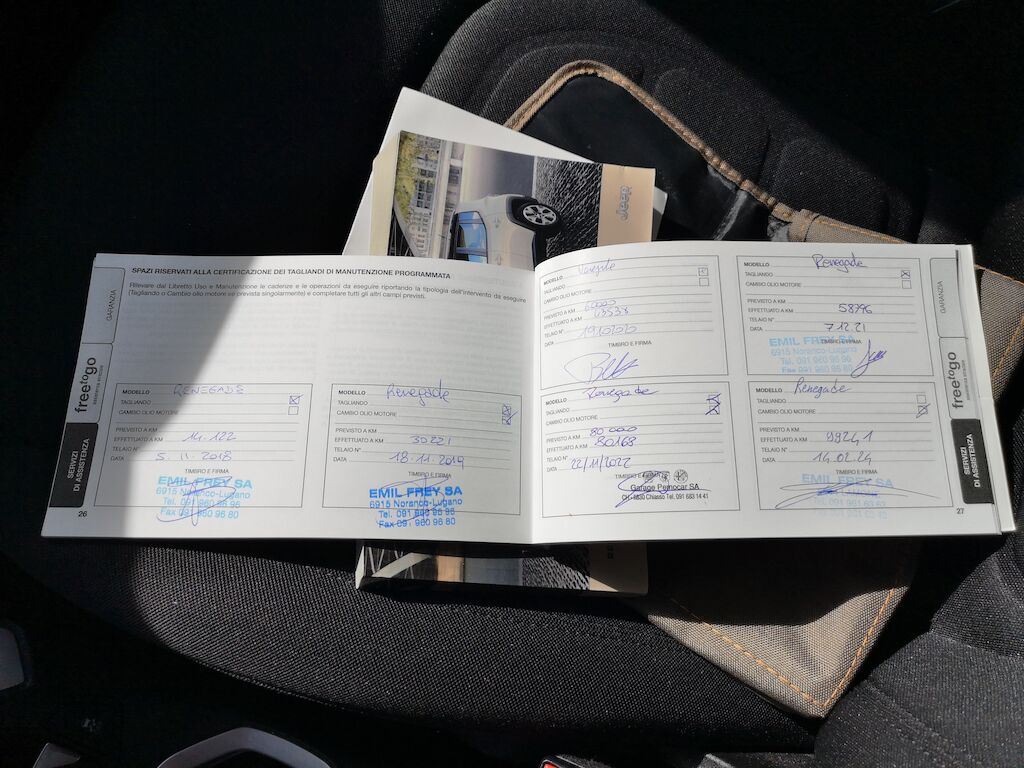 Jeep
SPAZI RISERVATI ALLA CERTIFICAZIONE DEI TAGLIANDI DI MANUTENZIONE PROGRAMMATA
Rilevare dal Libretto Uso e Manutenzione le cadenze e le operazioni da eseguire riportando la tipologia dell'intervento da eseguire
(Tagliando o Cambio olio motore se prevista singolarmente) e completare tutti gli altri campi previsti.
GARANZIA
freetogo
SERVIZI
DI ASSISTENZA
RENEGADE
TAGLIANDO
CAMBIO OLIO MOTORE
PREVISTO A KM
EFFETTUATO A KM 14.122
TELAIO N°
DATA 5.11.2018
TIMBRO E FIRMA
EMIL FREY SA
6915 Noranco-Lugano
Tel. 091 960 96 96
Fax 091 960 96 80
26
Renegade
TAGLIANDO
CAMBIO OLIO MOTORE
PREVISTO A KM
EFFETTUATO A KM 30221
TELAIO N°
DATA 18.11.2019
TIMBRO E FIRMA
EMIL FREY SA
6915 Noranco-Lugano
Tel. 091 960 96 96
Fax 091 960 96 80
MODELLO
TAGLIANDO
CAMBIO OLIO MOTORE
PREVISTO A KM
EFFETTUATO A KM
TELAIO N°
DATA
TIMBRO E FIRMA
MODELLO Renegade
TAGLIANDO
CAMBIO OLIO MOTORE
PREVISTO A KM
EFFETTUATO A KM 58796
TELAIO N°
DATA 7.12.21
TIMBRO E FIRMA
EMIL FREY SA
6915 Noranco-Lugano
Tel. 091 960 96 96
Fax 091 960 96 80
MODELLO Renegade
TAGLIANDO
CAMBIO OLIO MOTORE
PREVISTO A KM 80000
EFFETTUATO A KM 80168
TELAIO N°
DATA 22/11/2022
Garage Pernocar SA
CH - 6830 Chiasso Tel. 091 683 14 41
MODELLO Renegade
TAGLIANDO
CAMBIO OLIO MOTORE
PREVISTO A KM
EFFETTUATO A KM 99241
TELAIO N°
DATA 14.02.24
TIMBRO E FIRMA
EMIL FREY SA
6915 Noranco-Lugano
GARANZIA
freetogo
SERVIZI
DI ASSISTENZA
27